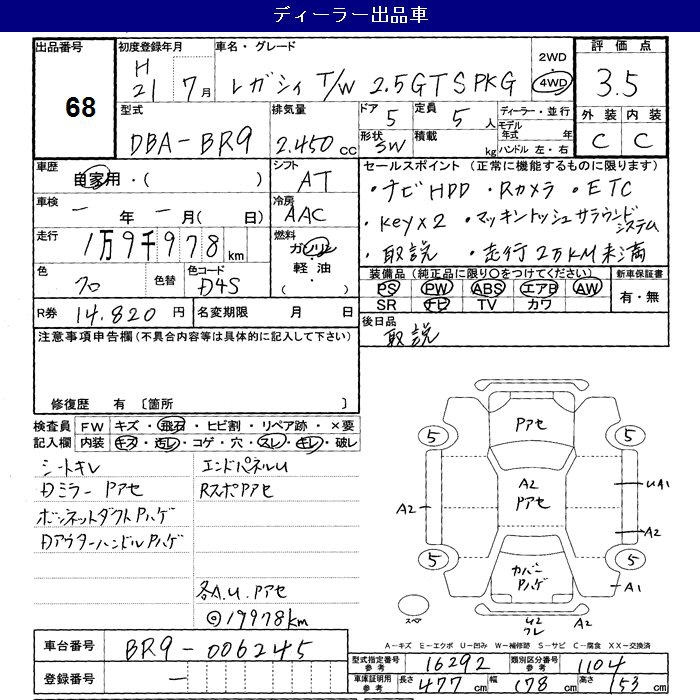 ディーラー出品車
出品番号 68
初度登録年月 H21年 7月
車名・グレード レガシィ T/W 2.5GT S PKG
2WD 4WD
評価点 3.5
外装 C 内装 C
型式 DBA-BR9
排気量 2.450 cc
ドア 5 形状 SW
定員 5人 積載 kg
ディーラー・並行
モデル年式 年
ハンドル 左・右
車歴 自家用・( )
シフト AT
セールスポイント (正常に機能するものに限ります)
・ナビHDD ・Rカメラ ・ETC
・Key×2 ・マッキントッシュサラウンドシステム
・取説 ・走行2万KM未満
車検 ー年 ー月(日)
冷房 AAC
走行 1万9千978km
燃料 ガソリン・軽油・( )
色 クロ 色替
色コード D4S
装備品 (純正品に限り○をつけてください)
PS PW ABS エアB AW
SR ナビ TV カワ
新車保証書 有・無
R券 14.820円
名変期限 月 日
後日品 取説
注意事項申告欄(不具合内容等は具体的に記入して下さい)
修復歴 有 〔箇所 〕
検査員記入欄
FW キズ・飛石・ヒビ割・リペア跡・×要
内装 キズ・汚レ・コゲ・穴・スレ・キレ・破レ
シートキレ
Dミラー Pアセ
ボンネットダクトPハゲ
DアウターハンドルPハゲ
エンドパネルU
RスポPアセ
各A.U.Pアセ
◎19978km
Pアセ
5 5
A2
Pアセ
A2
UA1
A2
5 5
カバー
Pハゲ
A1
スペア
A2
A-キズ E-エクボ U-凹み W-補修跡 S-サビ C-腐食 XX-交換済
車台番号 BR9-006245
登録番号 ー
型式指定番号 参考 16292
類別区分番号 参考 1104
車庫証明用 参考 長さ 477cm 幅 178cm 高さ 153cm